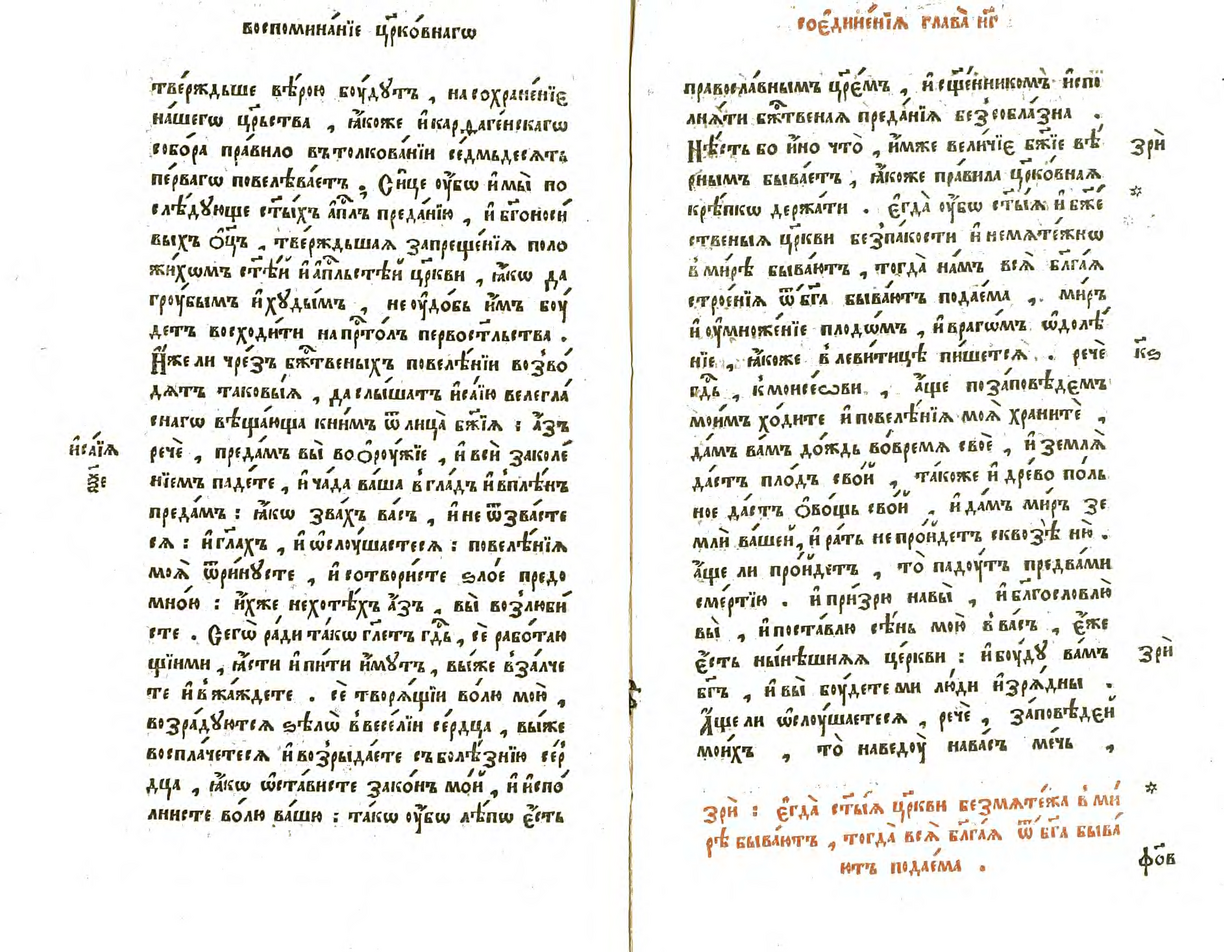 воспомина́нїе цр҃ко́внагѡ
тве́рждьше вѣ́рою боу́дутъ , на сохране́нїе
на́шегѡ цр҃ьства , ꙗ҆́коже и҆ кардаге́нскагѡ
собо́ра пра́вило въ толкова́нїи се́дмьдесѧтъ
пе́рвагѡ повелѣва́етъ . Си́це оу҆́бѡ и҆ мы̀ по
слѣ́дующе ст҃ы́хъ а҆п҃лъ преда́нїю , и҆ бг҃оноси́
выхъ ѻ҆ц҃ъ , тве́рждьшаѧ запреще́нїѧ поло
жи́хомъ ст҃ѣ́й и҆ а҆п҃льстѣ́й цр҃кви , ꙗ҆́кѡ да
гроу́бымъ и҆ худы́мъ , не оу҆до́бь и҆̀мъ боу́
детъ восходи́ти на пр҃то́лъ первост҃льства .
И҆́же ли чрезъ бж҃твеныхъ повелѣ́нїи возво́
дѧтъ таковы́ѧ , да слы́шатъ и҆са́їю велегла́
снагѡ вѣща́юща к ни́мъ ѿ лица̀ бж҃їѧ : а҆́зъ
речѐ , преда́мъ вы̀ во ѻ҆роу́жїе , и҆ всѝ заколе́
нїемъ паде́те , и҆ ча́да ва́ша в гла́дъ и҆ в плѣ́нъ
преда́мъ : ꙗ҆́кѡ зва́хъ ва́съ , и҆ не ѿзва́сте
сѧ : и҆ гл҃ахъ , и҆ ѡ҆слоу́шастесѧ : повелѣ́нїѧ
моѧ̀ ѿри́нусте , и҆ сотвори́сте ѕло́е предо
мно́ю : и҆́хже не хотѣ́хъ а҆́зъ , вы̀ возлюби́
сте . Сегѡ̀ ра́ди та́кѡ гл҃етъ гд҇ь , сѐ рабо́таю
щїи ми , ꙗ҆́сти и҆ пи́ти и҆́мутъ , вы́же взалче
те и҆ вжа́ждете . сѐ творѧ́щїи во́лю мою̀ ,
возра́дуютсѧ ѕѣлѡ̀ в весе́лїи се́рдца , вы́же
воспла́четесѧ и҆ возрыда́ете съ болѣ́знїю се́р
дца , ꙗ҆́кѡ ѡ҆ста́висте зако́нъ мо́й , и҆ и҆спо́
лнисте во́лю ва́шю : та́кѡ оу҆́бѡ лѣ́пѡ є҆́сть
и҆са́їѧ
ѯ҃е
соєдине́нїѧ глава̀ н҃г
правосла́внымъ цр҃е́мъ , и҆ сщ҃е́нникомъ и҆спо
лнѧ́ти бж҃твенаѧ преда́нїѧ без соблазна .
Нѣ́сть бо и҆́но что̀ , и҆́мже вели́чїе бж҃їе вѣ́
рнымъ быва́етъ , ꙗ҆́коже пра́вила цр҃ко́внаѧ
крѣ́пкѡ держа́ти . є҆гда̀ оу҆́бѡ ст҃ы́ѧ и҆ бж҃е
ственыѧ цр҃кви без па́кости и҆ немѧте́жнѡ
в ми́рѣ быва́ютъ , тогда̀ на́мъ всѧ̀ бл҃га́ѧ
строе́нїѧ ѿ бг҃а быва́ютъ подае́ма , ми́ръ
и҆ оу҆множе́нїе плодѡ́мъ , и҆ врагѡ́мъ ѡ҆долѣ́
нїе , ꙗ҆́коже в леви́тицѣ пи́шетсѧ . речѐ
гд҇ь , к моисе́ѡви , а҆́ще по за́повѣдемъ
мои́мъ хо́дите и҆ повелѣ́нїѧ моѧ̀ храни́те ,
да́мъ ва́мъ до́ждь во́времѧ своѐ , и҆ землѧ̀
да́стъ пло́дъ сво́й , та́коже и҆ дре́во по́ль
ное да́стъ ѻ҆во́щь сво́й , и҆ да́мъ ми́ръ зе
млѝ ва́шей , и҆ ра́ть не про́йдетъ сквозѣ̀ ню̀ .
а҆́ще ли про́йдетъ , то̀ падоу́тъ пред ва́ми
сме́ртїю . и҆ при́зрю на вы̀ , и҆ бл҃гословлю̀
вы̀ , и҆ поста́влю сѣ́нь мою̀ в ва́съ , є҆́же
є҆́сть ны́нѣшнѧѧ це́ркви : и҆ боу́ду ва́мъ
бг҃ъ , и҆ вы̀ боу́дете ми лю́ди и҆зрѧ́дны .
А҆́ще ли ѡ҆слоу́шаетесѧ , речѐ , за́повѣдей
мои́хъ , то̀ наведоу̀ на ва́съ ме́чь ,
зрѝ
*
к҃ѕ
зрѝ
зрѝ : є҆гда̀ ст҃ы́ѧ цр҃кви без мѧте́жа в ми́
рѣ быва́ютъ , тогда̀ всѧ̀ бл҃га́ѧ ѿ бг҃а быва́
ютъ подае́ма .
*
фо҃в